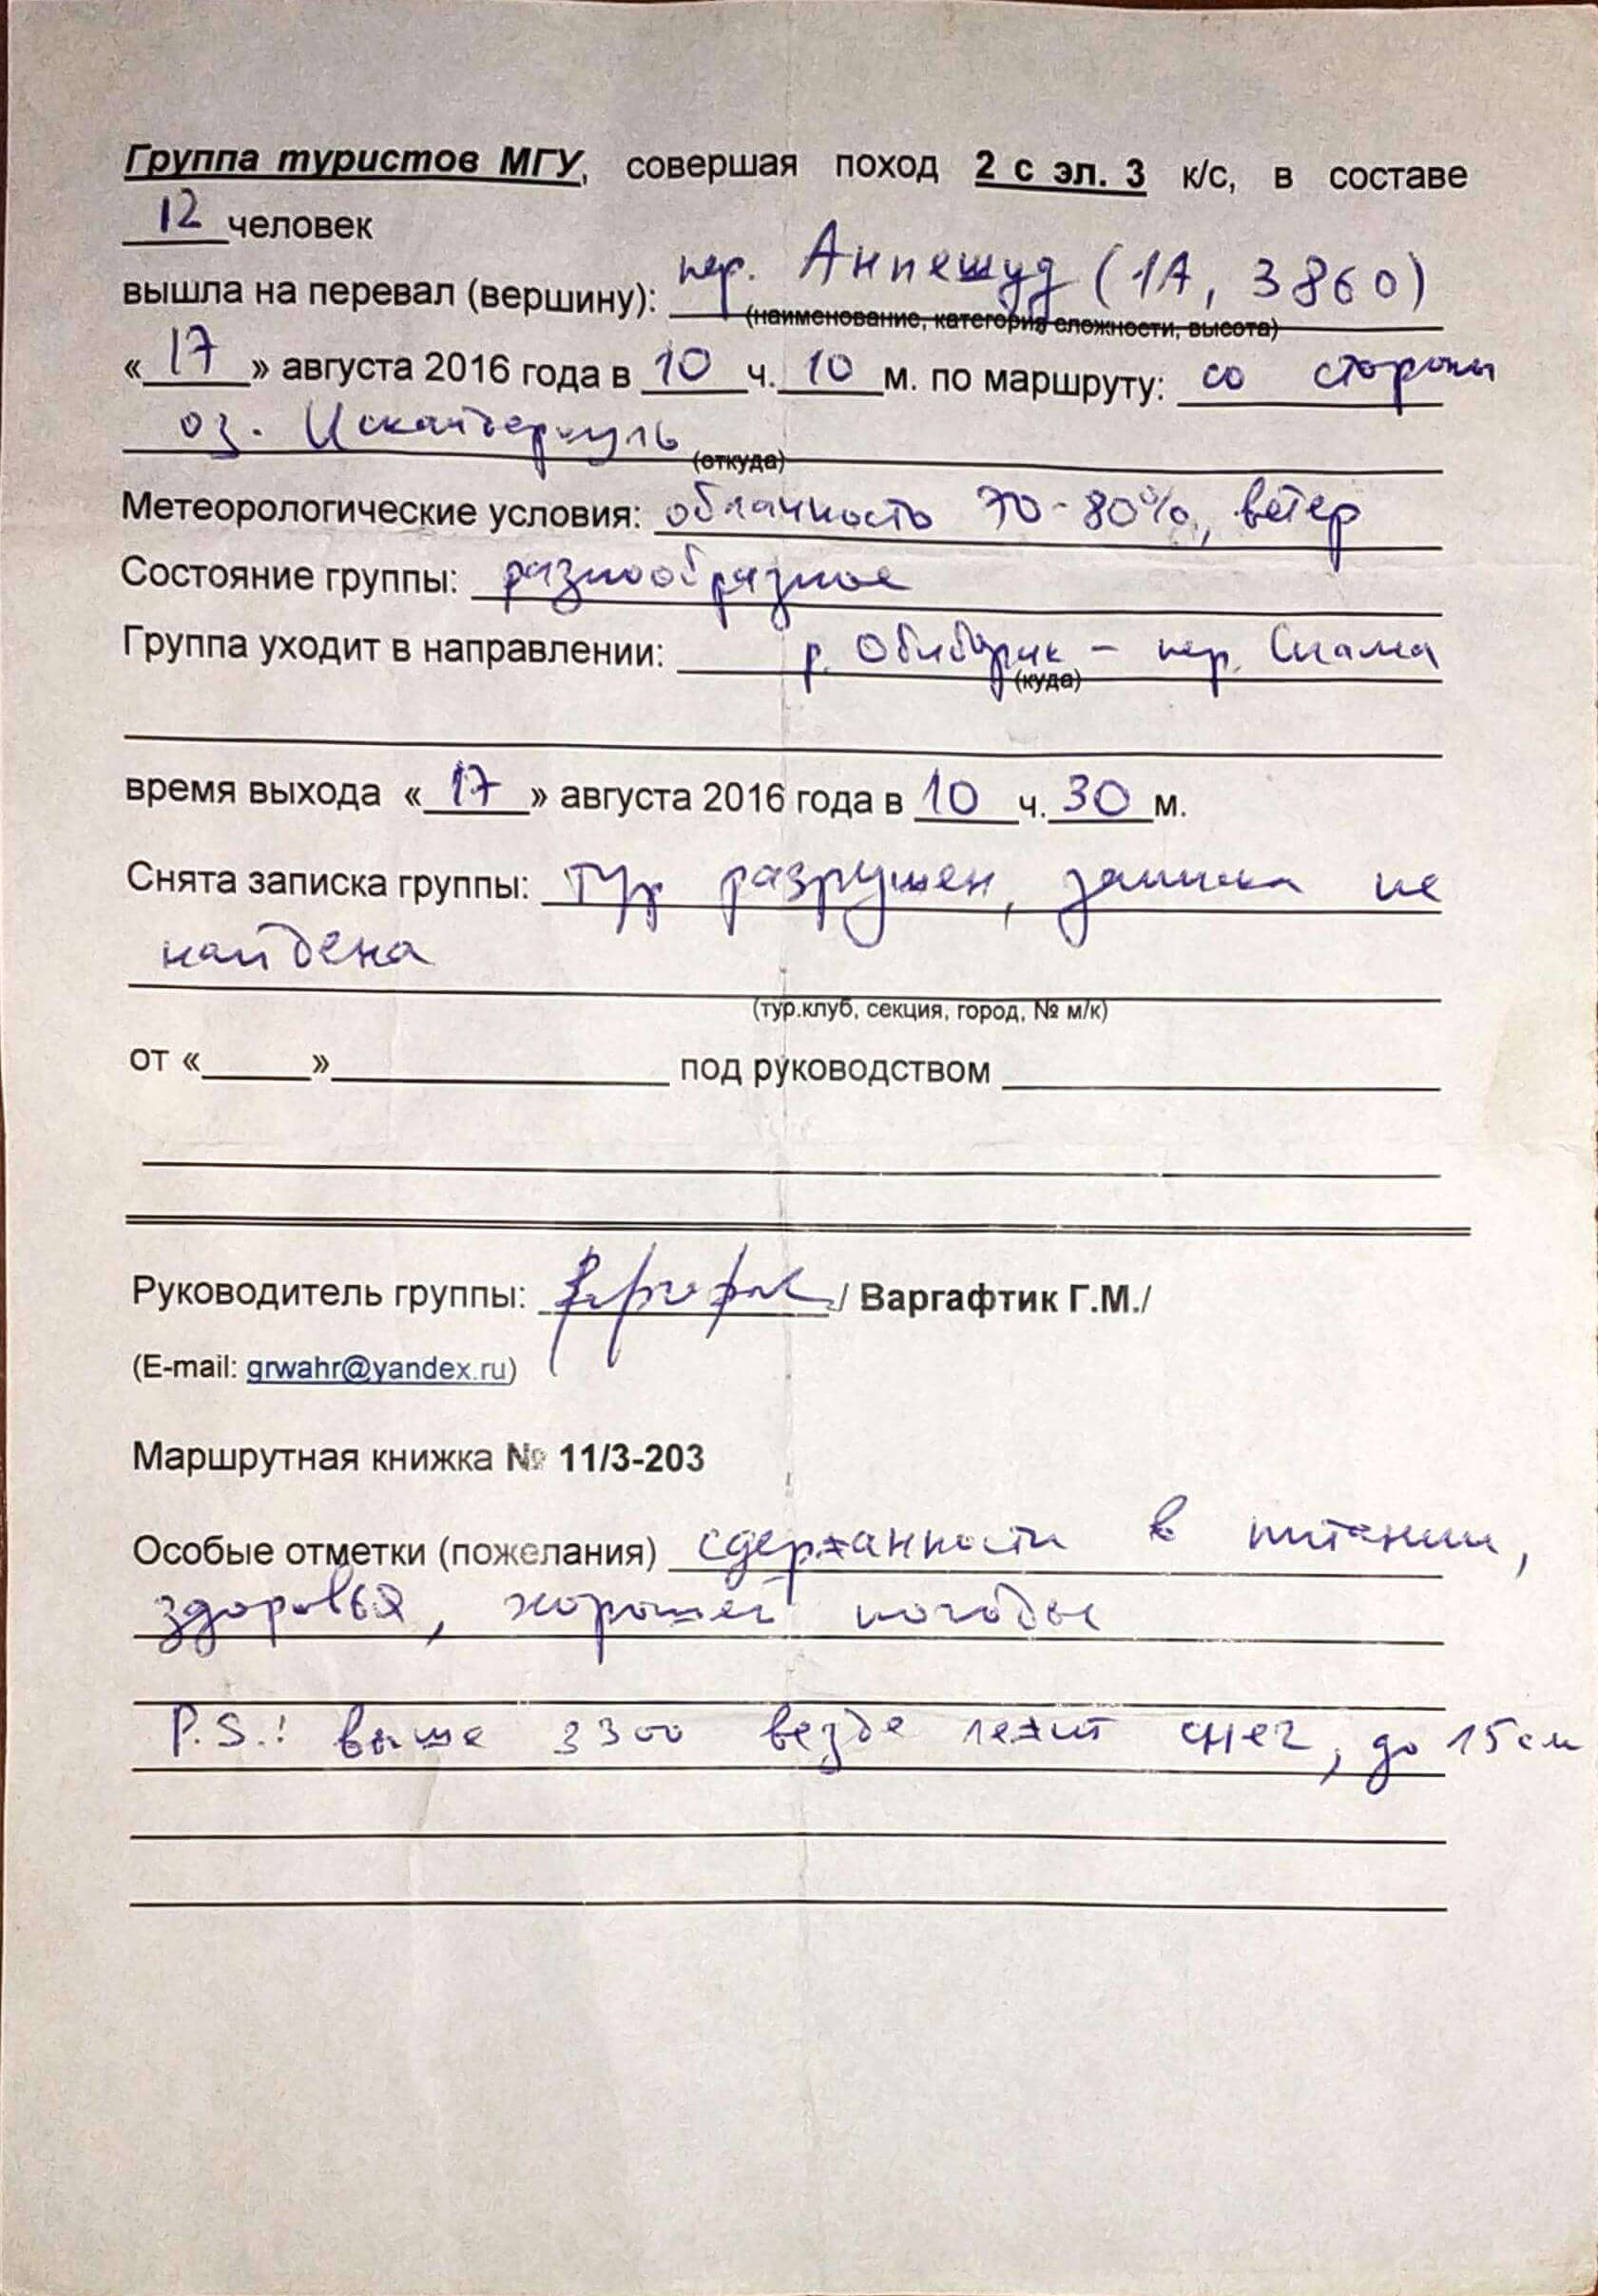 Группа туристов МГУ, совершая поход 2 с эл. 3 к/с, в составе
12 человек
вышла на перевал (вершину): пер. Анпешуд (1А, 3860)
(наименование, категория сложности, высота)
«17» августа 2016 года в 10 ч. 10 м. по маршруту: со стороны
оз. Искандеркуль
(откуда)
Метеорологические условия: облачность 70-80%, ветер
Состояние группы: разнообразное
Группа уходит в направлении: р. – пер.
(куда)
время выхода «17» августа 2016 года в 10 ч. 30 м.
Снята записка группы: тур разрушен, записка не
найдена
(тур.клуб, секция, город, № м/к)
от «_____»_______________ под руководством
Руководитель группы: / Варгафтик Г.М./
(E-mail: grwahr@yandex.ru)
Маршрутная книжка № 11/3-203
Особые отметки (пожелания) сдержанности в питании,
здоровья, хорошей погоды
P.S.: выше 3300 везде лежит снег, до 15 см